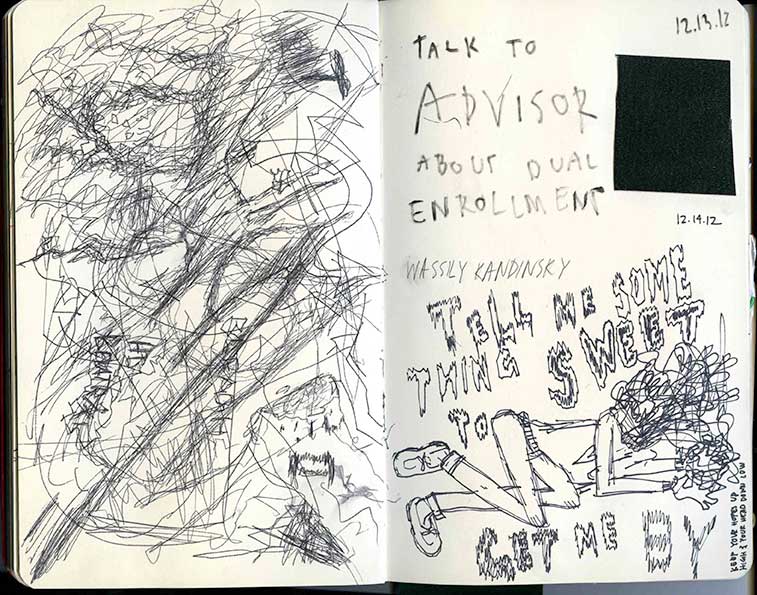 12.13.12
TALK TO
ADVISOR
ABOUT DUAL
ENROLLMENT
12.14.12
WASSILY KANDINSKY
TELL ME SOME
THING SWEET
TO
GET ME BY
KEEP YOUR HOPES UP
HIGH & YOUR HEAD DOWN LOW